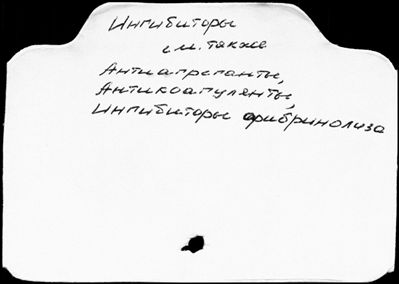 Ингибиторы
см. также
Антиагреганты,
Антикоагулянты,
Ингибиторы фибринолиза